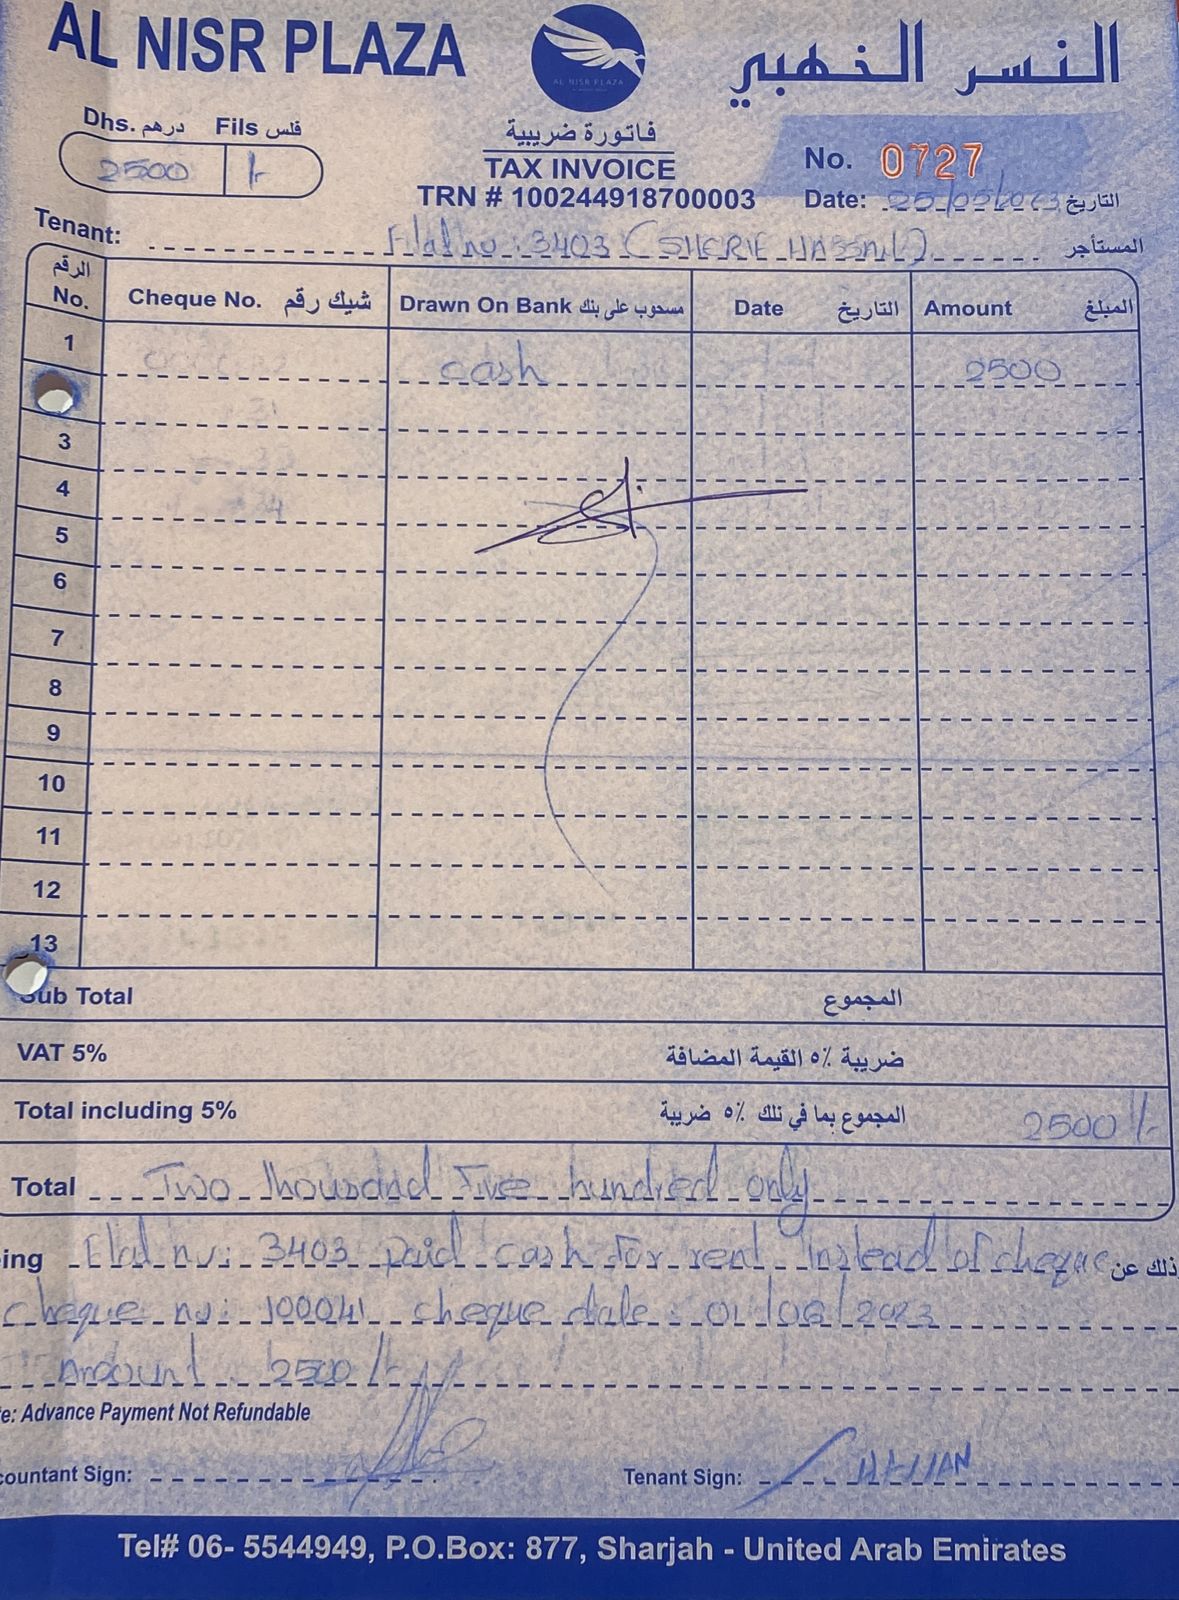 AL NISR PLAZA
النسر الذهبي
AL NISR PLAZA
Dhs. درهم Fils فلس
2500 /-
فاتورة ضريبية
TAX INVOICE
TRN # 100244918700003
No. 0727
Date: 25/05/2023 التاريخ
Tenant: Flat no: 3403 (SHERIF HASSAN) المستأجر
الرقم No. Cheque No. شيك رقم Drawn On Bank مسحوب على بنك Date التاريخ Amount المبلغ
1 cash 2500
3
4
5
6
7
8
9
10
11
12
13
Sub Total المجموع
VAT 5% ضريبة ٥٪ القيمة المضافة
Total including 5% المجموع بما في ذلك ٥٪ ضريبة 2500/-
Total Two thousand Five hundred only
ing Flat no: 3403 paid cash for rent instead of cheque ذلك عن
cheque no: 100041 cheque date: 01/06/2023
Amount 2500/-
e: Advance Payment Not Refundable
countant Sign: Tenant Sign: HASSAN
Tel# 06- 5544949, P.O.Box: 877, Sharjah - United Arab Emirates